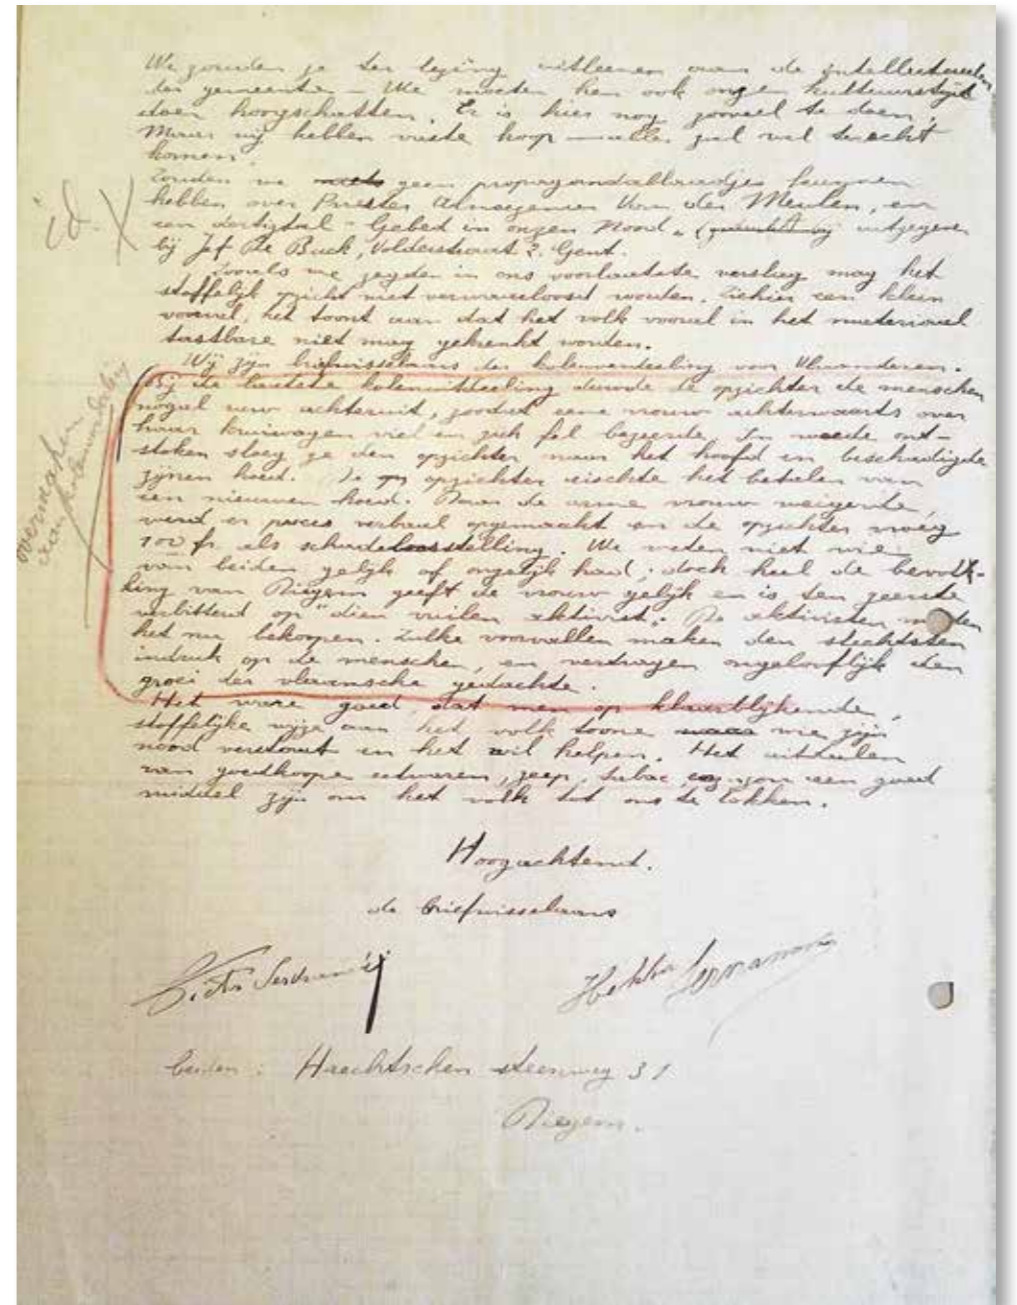 We zouden ze ter lezing uitleenen aan de intellectueelen
der gemeente - We moeten hen ook onzen kultuurstrijd
doen hoogschatten. Er is hier nog zooveel te doen,
Maar wij hebben vaste hoop - alles zal wel terecht
komen.
id. X
Zouden we niets geen propagandablaadjes kunnen
hebben over Priester Aalmoezenier Van der Meulen, en
een dertigtal "Gebed in onzen Nood" ( uitgegeven
bij Jef De Buck, Volderstraat 2. Gent.
Zooals we zegden in ons voorlaatste verslag mag het
stoffelijk opzicht niet verwaarloosd worden. Ziehier een klein
voorval, het toont aan dat het volk vooral in het materieel
tastbare niet mag gekrenkt worden.
overmaken
aan kolenverdeeling
Wij zijn briefwisselaars der kolenverdeeling voor Vlaanderen.
Bij de laatste kolenuitdeeling duwde de opzichter de menschen
nogal ruw achteruit, zoodat eene vrouw achterwaarts over
haar kruiwagen viel en zich fel bezeerde. In woede ont-
stoken sloeg ze den opzichter naar het hoofd en beschadigde
zijnen hoed. De opzichter eischte het betalen van
een nieuwen hoed. Daar de arme vrouw weigerde,
werd er proces verbaal opgemaakt en de opzichter vroeg
100 fr als schadeloosstelling. We weten niet wie
van beiden gelijk of ongelijk had; doch heel de bevol-
king van Diegem geeft de vrouw gelijk en is ten zeerste
verbitterd op "dien vuilen aktivist". De aktivisten moeten
het nu bekoopen. Zulke voorvallen maken den slechtsten
indruk op de menschen, en vertragen ongelooflijk den
groei der vlaamsche gedachte.
Het ware goed, dat men op klaarblijkende,
stoffelijke wijze aan het volk toone wie zijn
nood verstaat en het wil helpen. Het uitdeelen
van goedkoope eetwaren, zeep, tabac, zou een goed
middel zijn om het volk tot ons te lokken.
Hoogachtend.
de briefwisselaars
Victor Servranckx
Hektor
beiden: Haechtschen steenweg 31
Diegem.